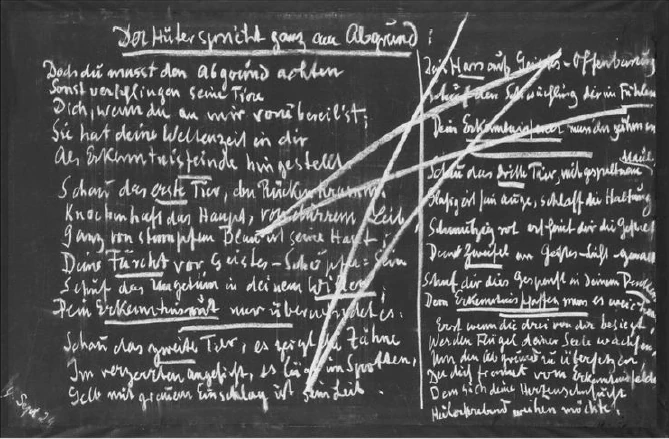 Der Hüter spricht ganz am Abgrund:
Doch du musst den Abgrund achten
Sonst verschlingen seine Tiere
Dich, wenn du an mir vorübereil'st;
Sie hat deine Weltenzeit in dir
Als Erkenntnisfeinde hingestellt
Schau das erste Tier, den Rücken krumm
Knochenhaft das Haupt, von dürrem Leib,
Ganz von stumpfem Blau ist seine Haut
Deine Furcht vor Geistes-Schöpfer-Sein
Schuf das Ungetüm in deinem Willen
Dein Erkenntnismut nur überwindet es.
Schau das zweite Tier, es zeigt die Zähne
Im verzerrten Angesicht, es lügt im Spotten,
Gelb mit grauem Einschlag ist sein Leib.
Dein Hass auf Geistes-Offenbarung
Schuf den Schwächling dir im Fühlen
Dein Erkenntnisfeuer muss ihn zähmen
Schau das dritte Tier, mit gespaltnem
Maul,
Glasig ist sein Auge, schlaff die Haltung
Schmutzig rot erscheint dir die Gestalt
Dein Zweifel an Geistes-Licht-Gewalt
Schuf dir dies Gespenst in deinem Denken
Dem Erkenntnisschaffen muss es weichen
Erst wenn die drei von dir besiegt
Werden Flügel deiner Seele wachsen
Um den Abgrund zu übersetzen
Der dich trennet vom Erkenntnisfelde
Dem sich deine Herzenssehnsucht
Heilerstrebend weihen möchte.
Sept 24